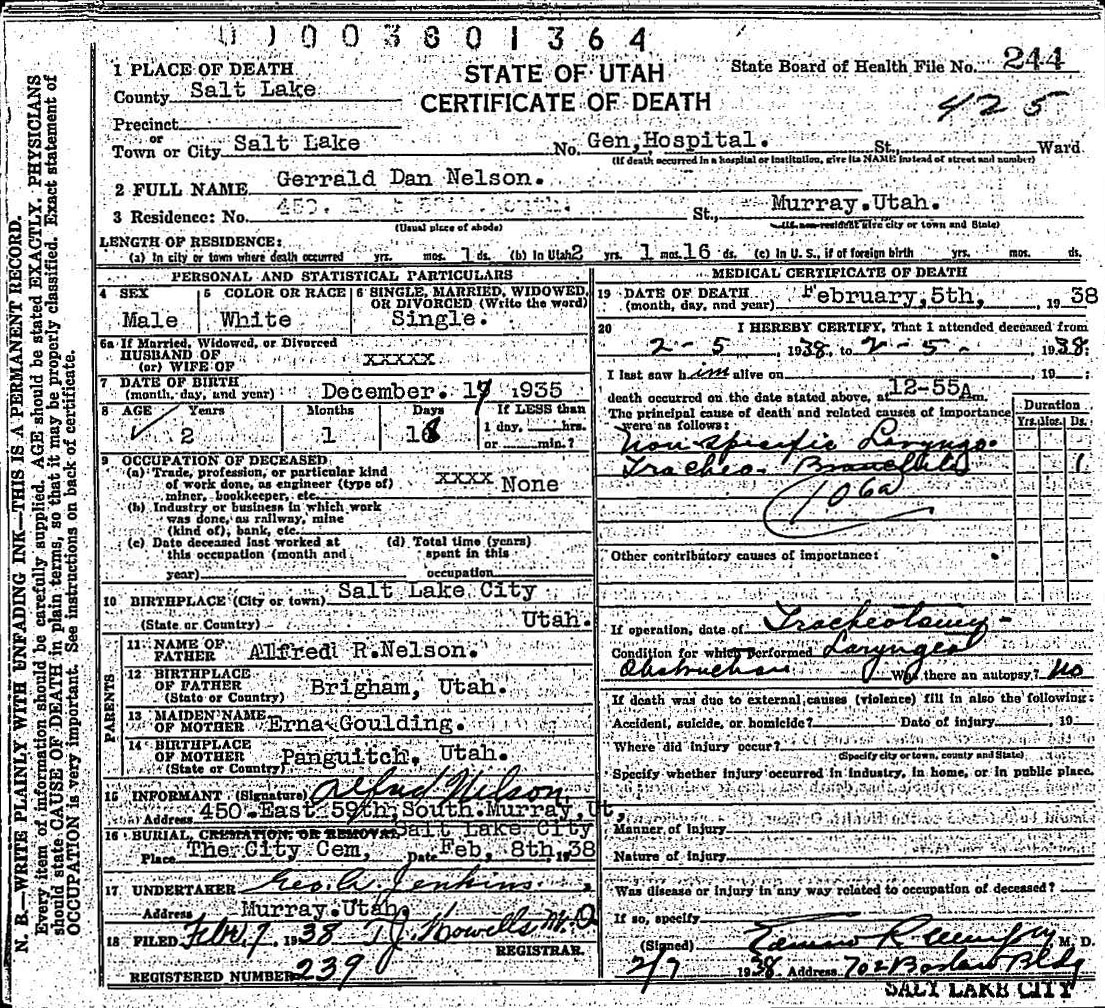 00003801364
1 PLACE OF DEATH
STATE OF UTAH
State Board of Health File No. 244
County Salt Lake
CERTIFICATE OF DEATH
425
Precinct
or
Town or City Salt Lake No. Gen, Hospital. St., Ward
(If death occurred in a hospital or institution, give its NAME instead of street and number)
2 FULL NAME Gerrald Dan Nelson.
3 Residence: No. St., Murray.Utah.
(Usual place of abode) (If non-resident give city or town and State)
LENGTH OF RESIDENCE:
(a) In city or town where death occurred yrs. mos. 1 ds. (b) In Utah 2 yrs. 1 mos. 16 ds. (c) In U. S., if of foreign birth yrs. mos. ds.
PERSONAL AND STATISTICAL PARTICULARS
4 SEX Male
5 COLOR OR RACE White
6 SINGLE, MARRIED, WIDOWED, OR DIVORCED (Write the word) Single.
6a If Married, Widowed, or Divorced
HUSBAND OF
(or) WIFE OF xxxxx
7 DATE OF BIRTH
(month, day, and year) December. 17 1935
8 AGE Years Months Days If LESS than
2 1 18 1 day, hrs.
or min.?
9 OCCUPATION OF DECEASED
(a) Trade, profession, or particular kind
of work done, as engineer (type of)
miner, bookkeeper, etc. xxxx None
(b) Industry or business in which work
was done, as railway, mine
(kind of), bank, etc.
(c) Date deceased last worked at
this occupation (month and
year)
(d) Total time (years)
spent in this
occupation
10 BIRTHPLACE (City or town) Salt Lake City
(State or Country) Utah.
PARENTS
11 NAME OF
FATHER Alfred R.Nelson.
12 BIRTHPLACE
OF FATHER Brigham, Utah.
(State or Country)
13 MAIDEN NAME
OF MOTHER Erna Goulding.
14 BIRTHPLACE
OF MOTHER Panguitch, Utah.
(State or Country)
15 INFORMANT (Signature) Alfred Nelson
Address 450 East 59th, South.Murray,Ut,
16 BURIAL, CREMATION, OR REMOVAL Salt Lake City
Place The City Cem, Date Feb, 8th, 1938
17 UNDERTAKER Geo. A. Jenkins
Address Murray.Utah
18 FILED Feb. 7 1938 T J Howells M.D
REGISTRAR.
REGISTERED NUMBER 239
MEDICAL CERTIFICATE OF DEATH
19 DATE OF DEATH
(month, day, and year) February,5th, 1938
20 I HEREBY CERTIFY, That I attended deceased from
2-5- 1938, to 2-5- 1938:
I last saw him alive on 19 :
death occurred on the date stated above, at 12-55A m.
The principal cause of death and related causes of importance
were as follows:
Duration
Yrs. Mos. Ds.
Non specific Laryngo.
Tracheo-Bronchitis 1
106a
Other contributory causes of importance:
If operation, date of Tracheotomy -
Condition for which performed Laryngeal
Obstruction Was there an autopsy? No
If death was due to external causes (violence) fill in also the following:
Accident, suicide, or homicide? Date of injury , 19
Where did injury occur?
(Specify city or town, county and State)
Specify whether injury occurred in industry, in home, or in public place.
Manner of Injury
Nature of injury
Was disease or injury in any way related to occupation of deceased?
If so, specify
(Signed) M. D.
2/7 1938 Address 702 Boston Bldg
SALT LAKE CITY
N. B.—WRITE PLAINLY WITH UNFADING INK—THIS IS A PERMANENT RECORD.
Every item of information should be carefully supplied. AGE should be stated EXACTLY. PHYSICIANS
should state CAUSE OF DEATH in plain terms, so that it may be properly classified. Exact statement of
OCCUPATION is very important. See instructions on back of certificate.